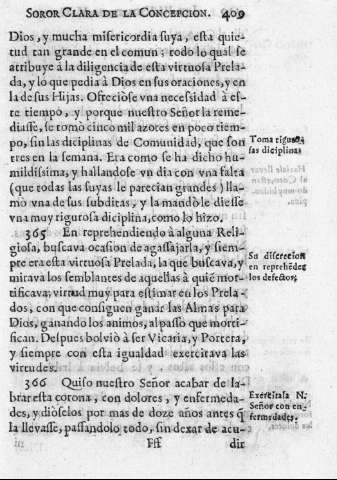 SOROR CLARA DE LA CONCEPCION. 409
Dios, y mucha misericordia suya, esta quie-
tud tan grande en el comun; todo lo qual se
atribuye à la diligencia de esta virtuosa Prela-
da, y lo que pedia à Dios en sus oraciones, y en
la de sus Hijas. Ofreciòse vna necessidad à es-
te tiempo, y porque nuestro Señor la reme-
diasse, se tomò cinco mil azotes en poco tiem-
po, sin las diciplinas de Comunidad, que son
tres en la semana. Era como se ha dicho hu-
mildissima, y hallandose vn dia con vna falta
(que todas las suyas le parecian grandes) lla-
mò vna de sus subditas, y la mandòle diesse
vna muy rigurosa diciplina, como lo hizo.
Toma rigurosas
sas diciplinas
365 En reprehendiendo à alguna Reli-
giosa, buscava ocasion de agassajarla, y siem-
pre era esta virtuosa Prelada, la que buscava, y
mirava los semblantes de aquellas à quiẽ mor-
tificava; virtud muy para estimar en los Prela-
dos, con que consiguen ganar las Almas para
Dios, ganando los animos, al passo que morti-
fican. Despues bolviò à ser Vicaria, y Portera,
y siempre con esta igualdad exercitava las
virtudes.
Su discrecion
en reprehẽder
los defectos.
366 Quiso nuestro Señor acabar de la-
brar esta corona, con dolores, y enfermeda-
des, y diòselos por mas de doze años antes q̃
la llevasse, passandolo todo, sin dexar de acu-
Exercitala N.
Señor con en-
fermedades.
Fff dir